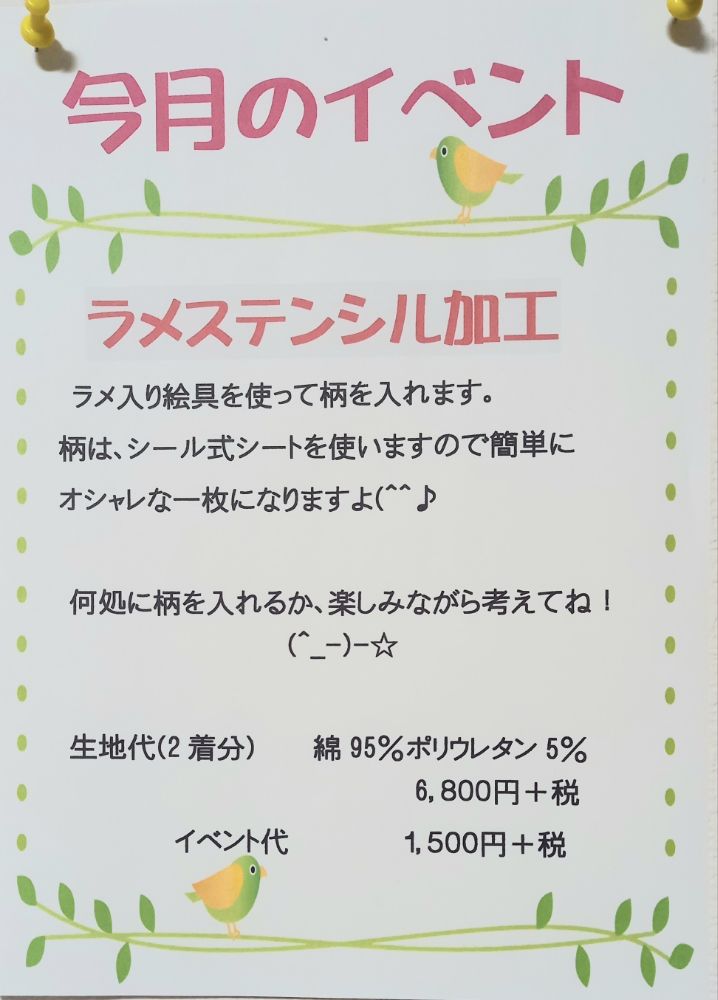 今月のイベント
ラメステンシル加工
ラメ入り絵具を使って柄を入れます。
柄は、シール式シートを使いますので簡単に
オシャレな一枚になりますよ(^^♪
何処に柄を入れるか、楽しみながら考えてね！
(^_-)-☆
生地代(2着分)　綿95%ポリウレタン5%
6,800円＋税
イベント代　1,500円＋税